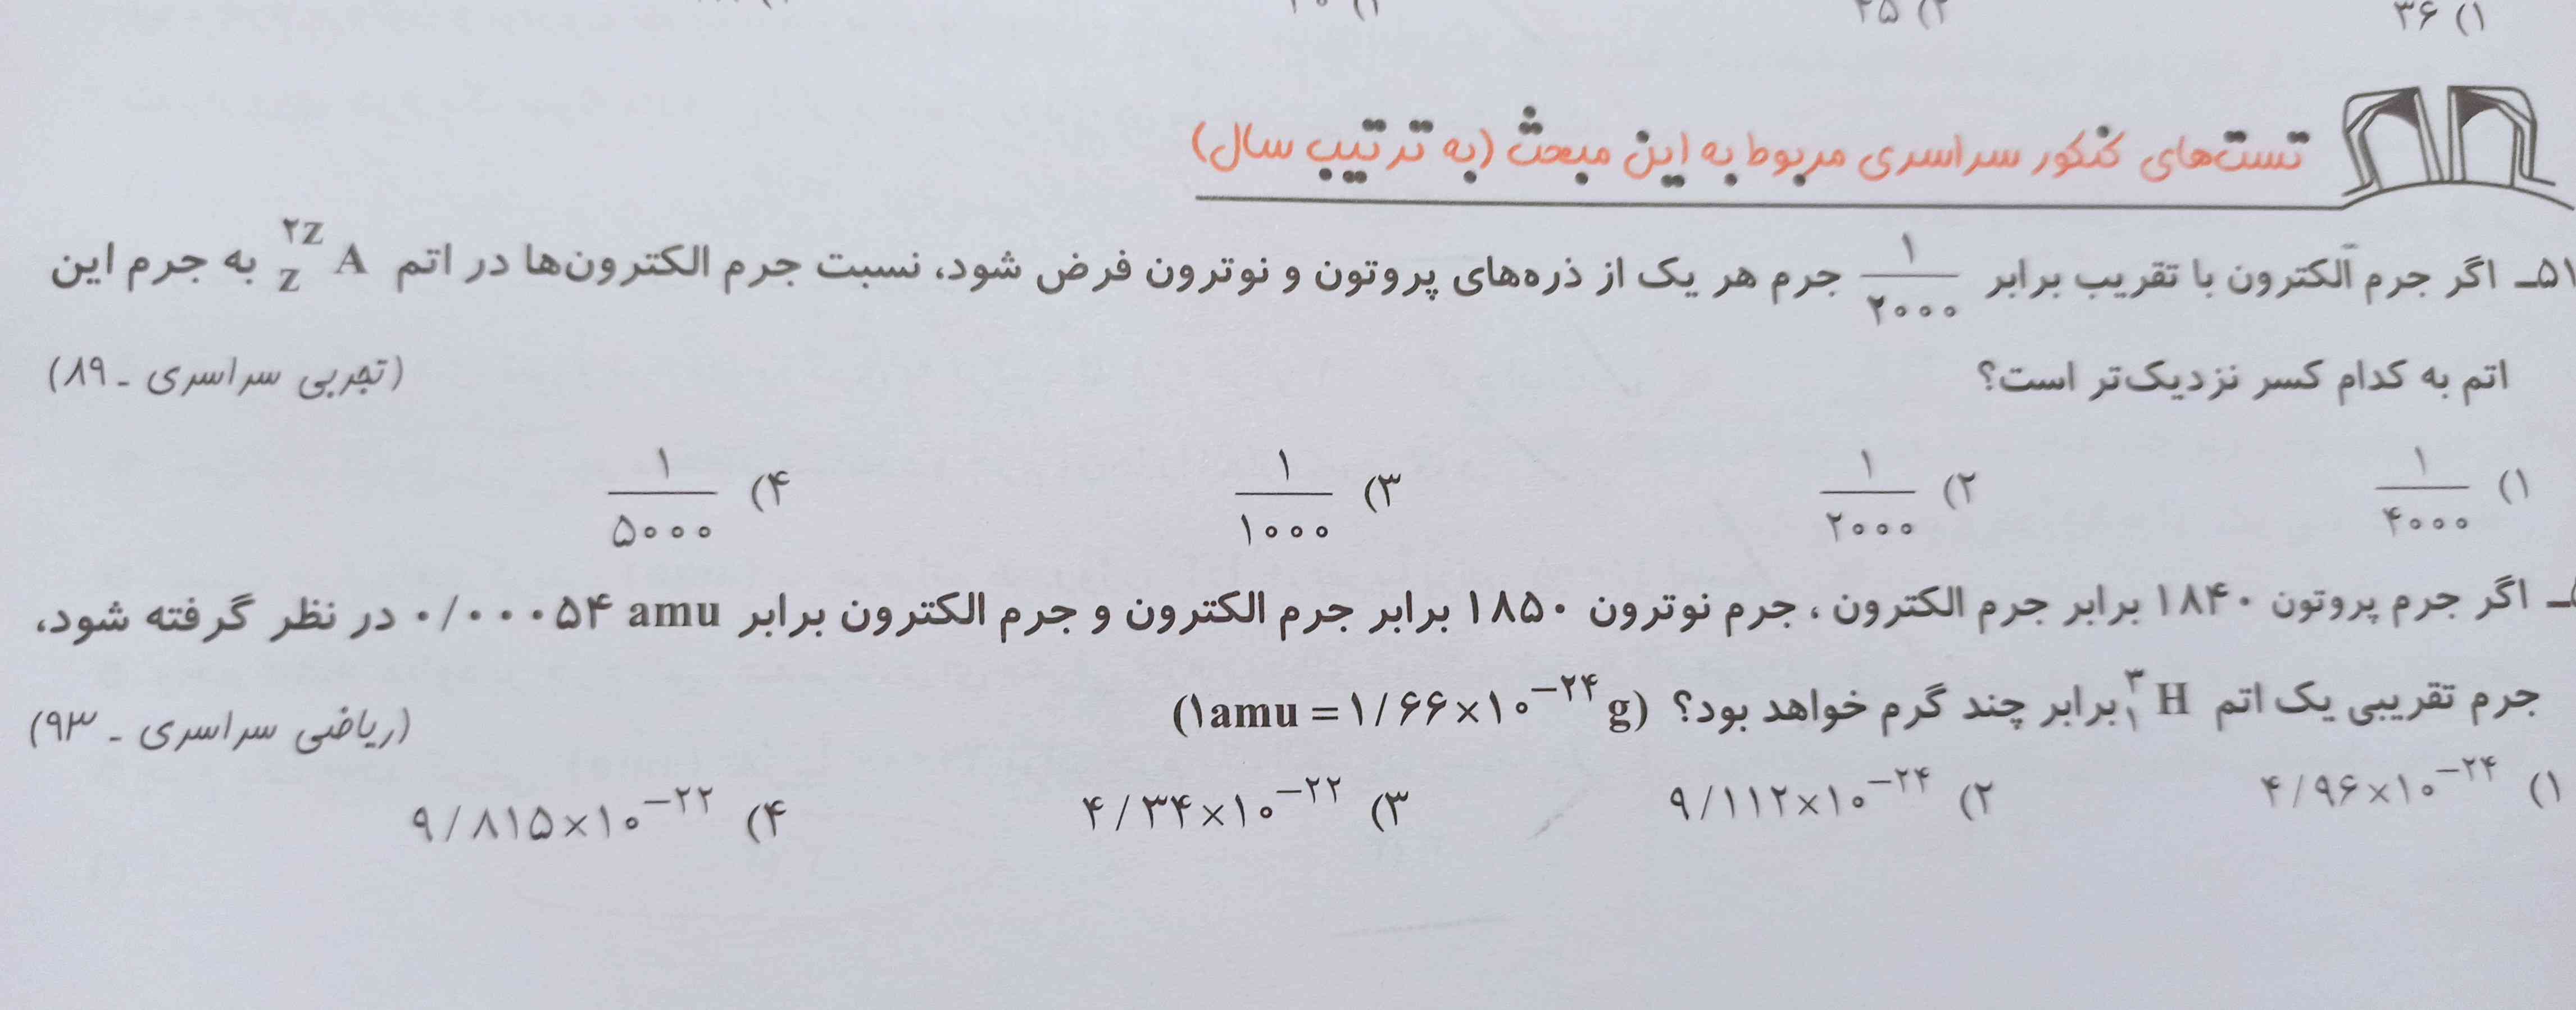 ۱) ۳۶
۲) ۴۵
تست‌های کنکور سراسری مربوط به این مبحث (به ترتیب سال)
۵۱ـ اگر جرم الکترون با تقریب برابر ۱/۲۰۰۰ جرم هر یک از ذره‌های پروتون و نوترون فرض شود، نسبت جرم الکترون‌ها در اتم ²ᶻ_Z A به جرم این
اتم به کدام کسر نزدیک‌تر است؟ (تجربی سراسری ـ ۸۹)
۱) ۱/۴۰۰۰ ۲) ۱/۲۰۰۰ ۳) ۱/۱۰۰۰ ۴) ۱/۵۰۰۰
ـ اگر جرم پروتون ۱۸۴۰ برابر جرم الکترون ، جرم نوترون ۱۸۵۰ برابر جرم الکترون و جرم الکترون برابر ۰/۰۰۰۵۴ amu در نظر گرفته شود،
جرم تقریبی یک اتم ³₁H برابر چند گرم خواهد بود؟ (۱amu = ۱/۶۶×۱۰^−۲۴ g) (ریاضی سراسری ـ ۹۳)
۱) ۴/۹۶×۱۰^−۲۴ ۲) ۹/۱۱۲×۱۰^−۲۴ ۳) ۴/۳۴×۱۰^−۲۲ ۴) ۹/۸۱۵×۱۰^−۲۲